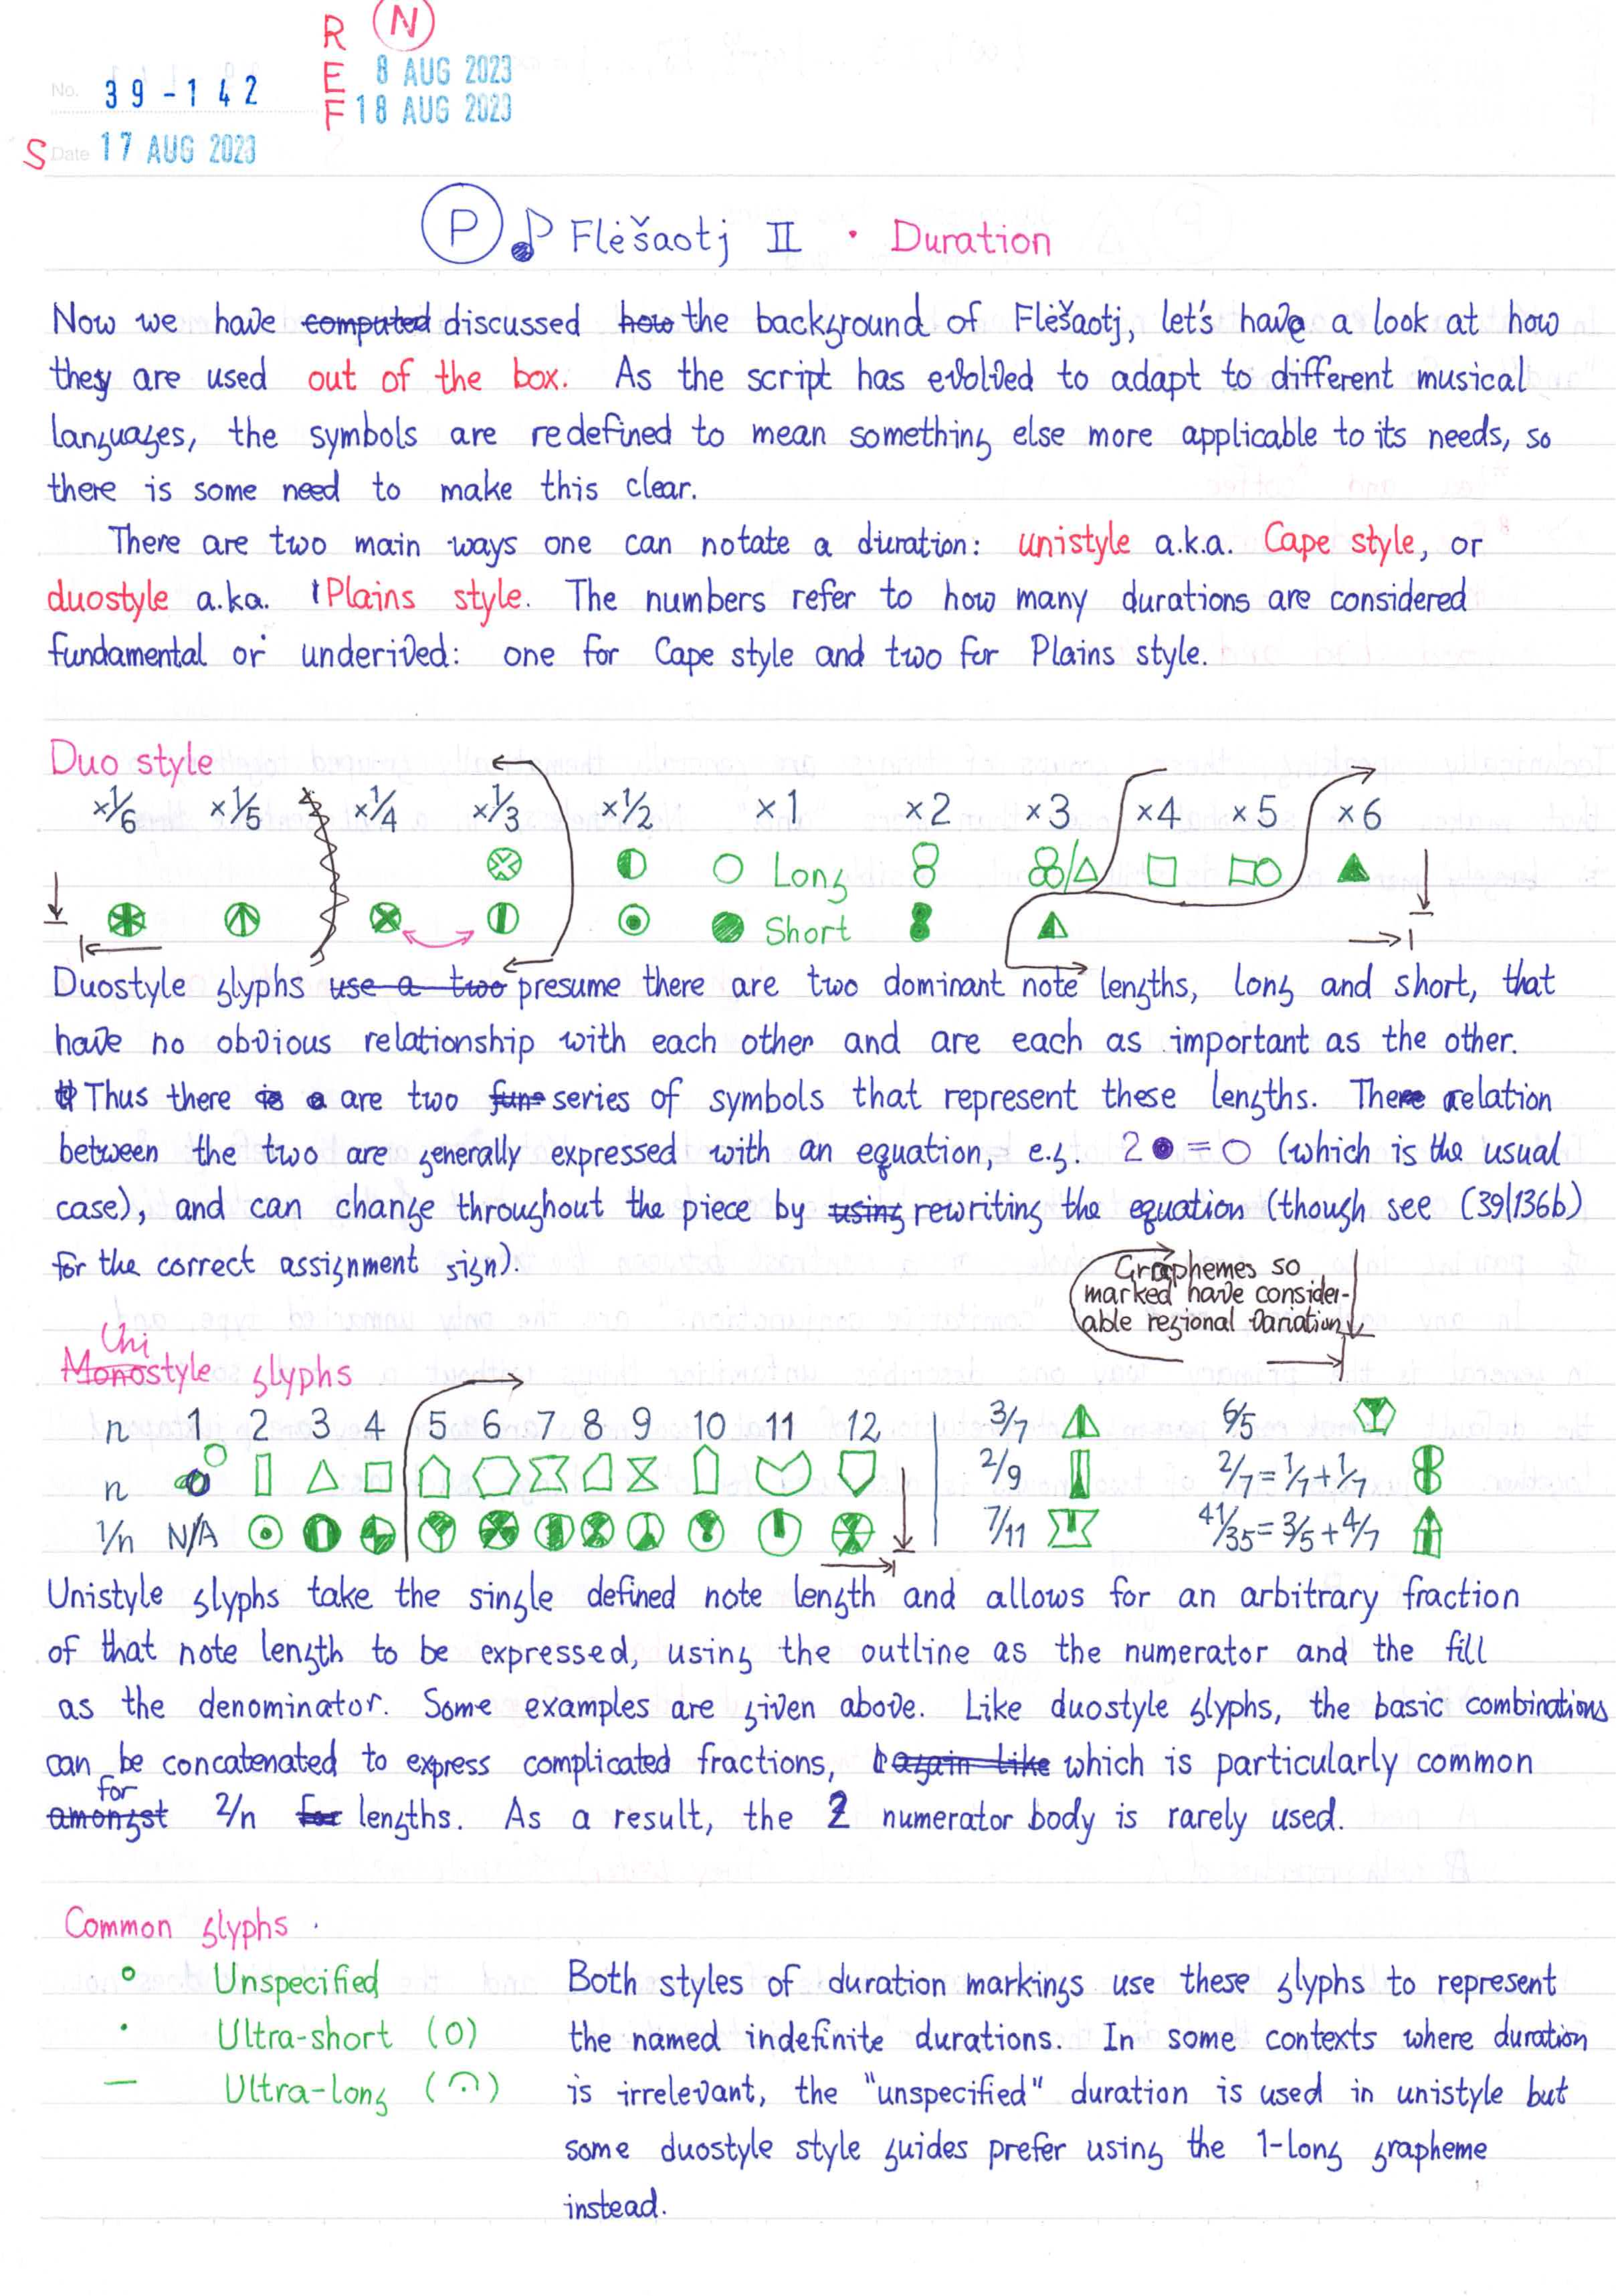 R N
E 8 AUG 2023
No. 39-142
F 18 AUG 2023
S Date 17 AUG 2023
P Flėšaotj II · Duration
Now we have computed discussed how the background of Flėšaotj, let's have a look at how
they are used out of the box. As the script has evolved to adapt to different musical
languages, the symbols are redefined to mean something else more applicable to its needs, so
there is some need to make this clear.
There are two main ways one can notate a duration: unistyle a.k.a. Cape style, or
duostyle a.k.a. Plains style. The numbers refer to how many durations are considered
fundamental or underived: one for Cape style and two for Plains style.
Duo style
×1/6 ×1/5 ×1/4 ×1/3 ×1/2 ×1 ×2 ×3 ×4 ×5 ×6
Long
Short
Duostyle glyphs use a two presume there are two dominant note lengths, long and short, that
have no obvious relationship with each other and are each as important as the other.
Thus there is a are two fun series of symbols that represent these lengths. The relation
between the two are generally expressed with an equation, e.g. 2●=○ (which is the usual
case), and can change throughout the piece by using rewriting the equation (though see (39|136b)
for the correct assignment sign).
Graphemes so
marked have consider-
able regional variation
Uni
Monostyle glyphs
n 1 2 3 4 5 6 7 8 9 10 11 12 3/7 6/5
n 2/9 2/7=1/7+1/7
1/n N/A 7/11 41/35=3/5+4/7
Unistyle glyphs take the single defined note length and allows for an arbitrary fraction
of that note length to be expressed, using the outline as the numerator and the fill
as the denominator. Some examples are given above. Like duostyle glyphs, the basic combinations
can be concatenated to express complicated fractions, again like which is particularly common
for
amongst 2/n for lengths. As a result, the 2 numerator body is rarely used.
Common glyphs
Unspecified
Ultra-short (0)
Ultra-long (𝄐)
Both styles of duration markings use these glyphs to represent
the named indefinite durations. In some contexts where duration
is irrelevant, the "unspecified" duration is used in unistyle but
some duostyle style guides prefer using the 1-long grapheme
instead.